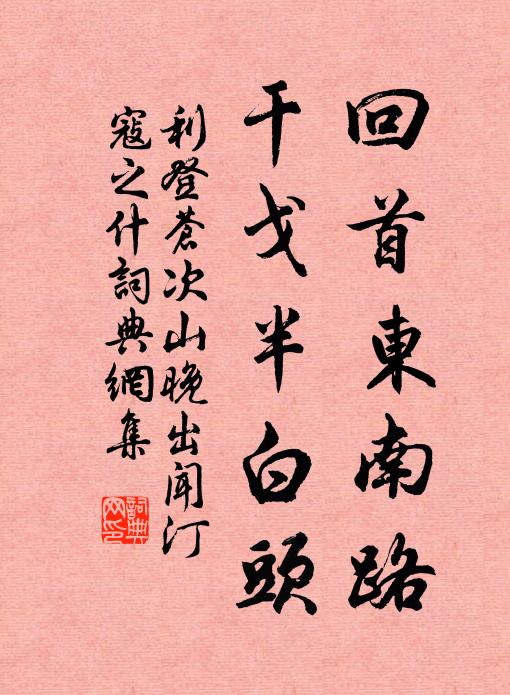 回首東南路
干戈半白頭
利登蒼次山晚出聞汀
寇之什詞典網集
詞典網印